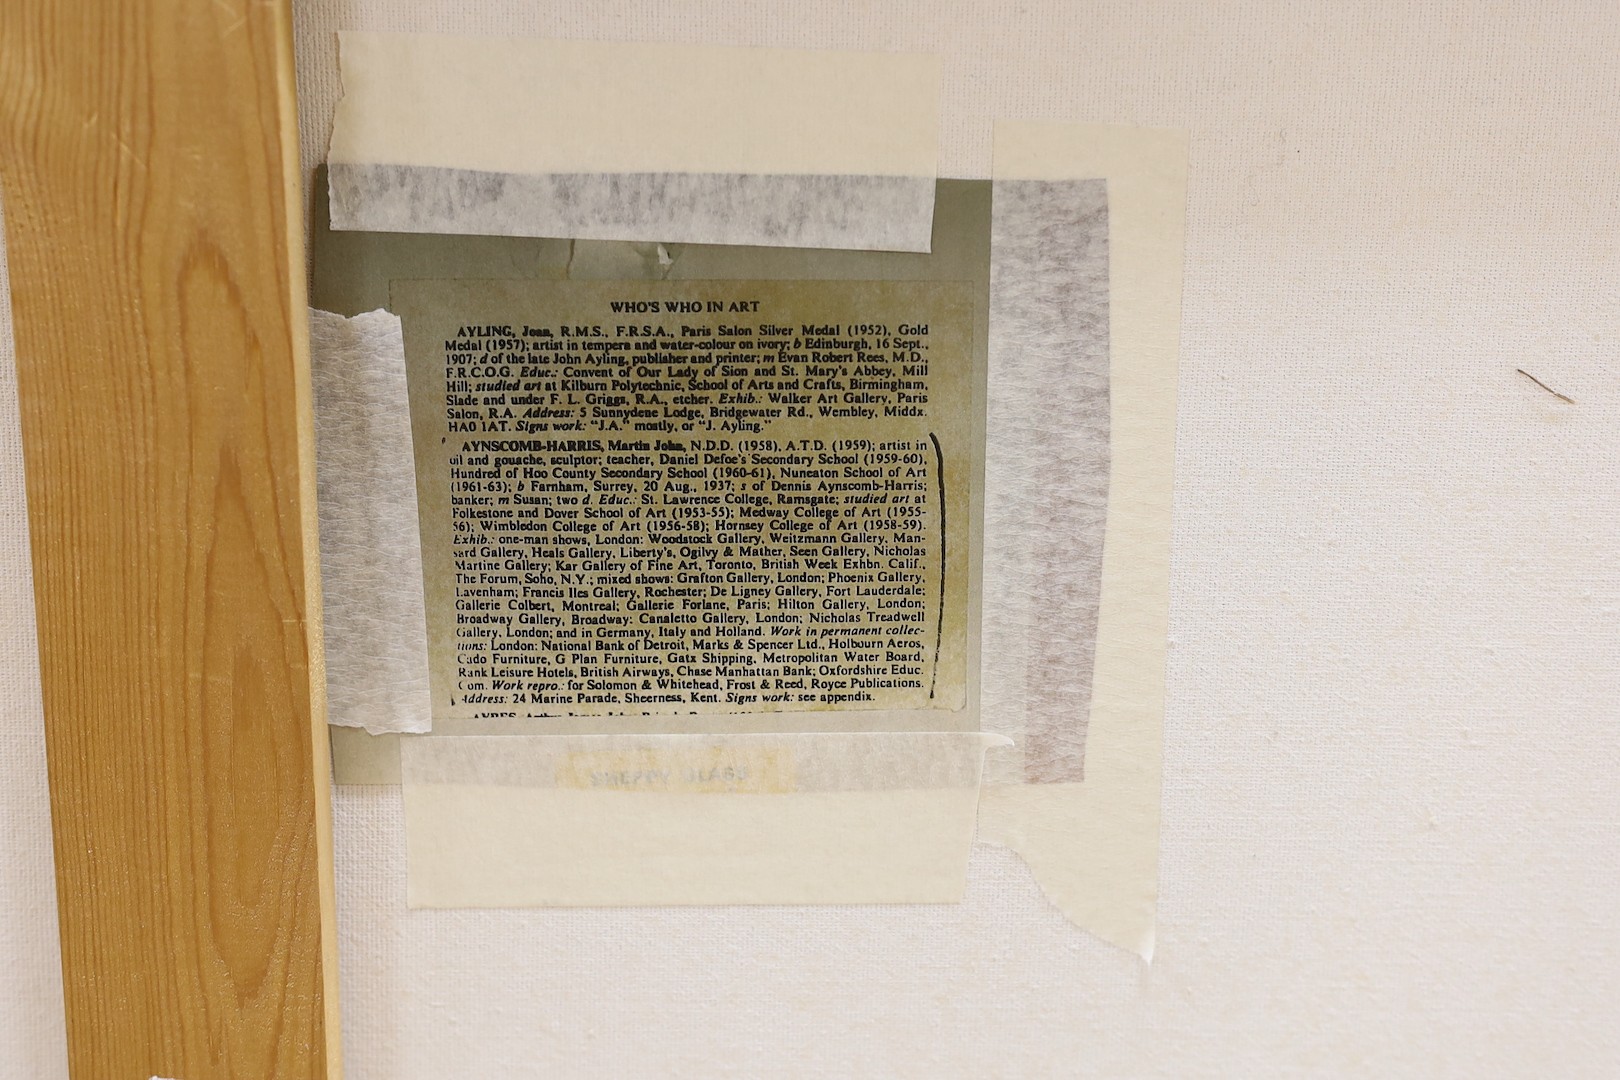 WHO'S WHO IN ART
AYLING, Joan, R.M.S., F.R.S.A., Paris Salon Silver Medal (1952), Gold
Medal (1957); artist in tempera and water-colour on ivory; b Edinburgh, 16 Sept.,
1907; d of the late John Ayling, publisher and printer; m Evan Robert Rees, M.D.,
F.R.C.O.G. Educ.: Convent of Our Lady of Sion and St. Mary's Abbey, Mill
Hill; studied art at Kilburn Polytechnic, School of Arts and Crafts, Birmingham,
Slade and under F. L. Griggs, R.A., etcher. Exhib.: Walker Art Gallery, Paris
Salon, R.A. Address: 5 Sunnydene Lodge, Bridgewater Rd., Wembley, Middx.
HA0 1AT. Signs work: "J.A." mostly, or "J. Ayling."
AYNSCOMB-HARRIS, Martin John, N.D.D. (1958), A.T.D. (1959); artist in
oil and gouache, sculptor; teacher, Daniel Defoe's Secondary School (1959-60),
Hundred of Hoo County Secondary School (1960-61), Nuneaton School of Art
(1961-63); b Farnham, Surrey, 20 Aug., 1937; s of Dennis Aynscomb-Harris;
banker; m Susan; two d. Educ.: St. Lawrence College, Ramsgate; studied art at
Folkestone and Dover School of Art (1953-55); Medway College of Art (1955-
56); Wimbledon College of Art (1956-58); Hornsey College of Art (1958-59).
Exhib.: one-man shows, London: Woodstock Gallery, Weitzmann Gallery, Man-
sard Gallery, Heals Gallery, Liberty's, Ogilvy & Mather, Seen Gallery, Nicholas
Martine Gallery; Kar Gallery of Fine Art, Toronto, British Week Exhbn. Calif.,
The Forum, Soho, N.Y.; mixed shows: Grafton Gallery, London; Phoenix Gallery,
Lavenham; Francis Iles Gallery, Rochester; De Ligney Gallery, Fort Lauderdale;
Gallerie Colbert, Montreal; Gallerie Forlane, Paris; Hilton Gallery, London;
Broadway Gallery, Broadway: Canaletto Gallery, London; Nicholas Treadwell
Gallery, London; and in Germany, Italy and Holland. Work in permanent collec-
tions: London: National Bank of Detroit, Marks & Spencer Ltd., Holbourn Aeros,
Cado Furniture, G Plan Furniture, Gatx Shipping, Metropolitan Water Board,
Rank Leisure Hotels, British Airways, Chase Manhattan Bank; Oxfordshire Educ.
Com. Work repro.: for Solomon & Whitehead, Frost & Reed, Royce Publications.
Address: 24 Marine Parade, Sheerness, Kent. Signs work: see appendix.